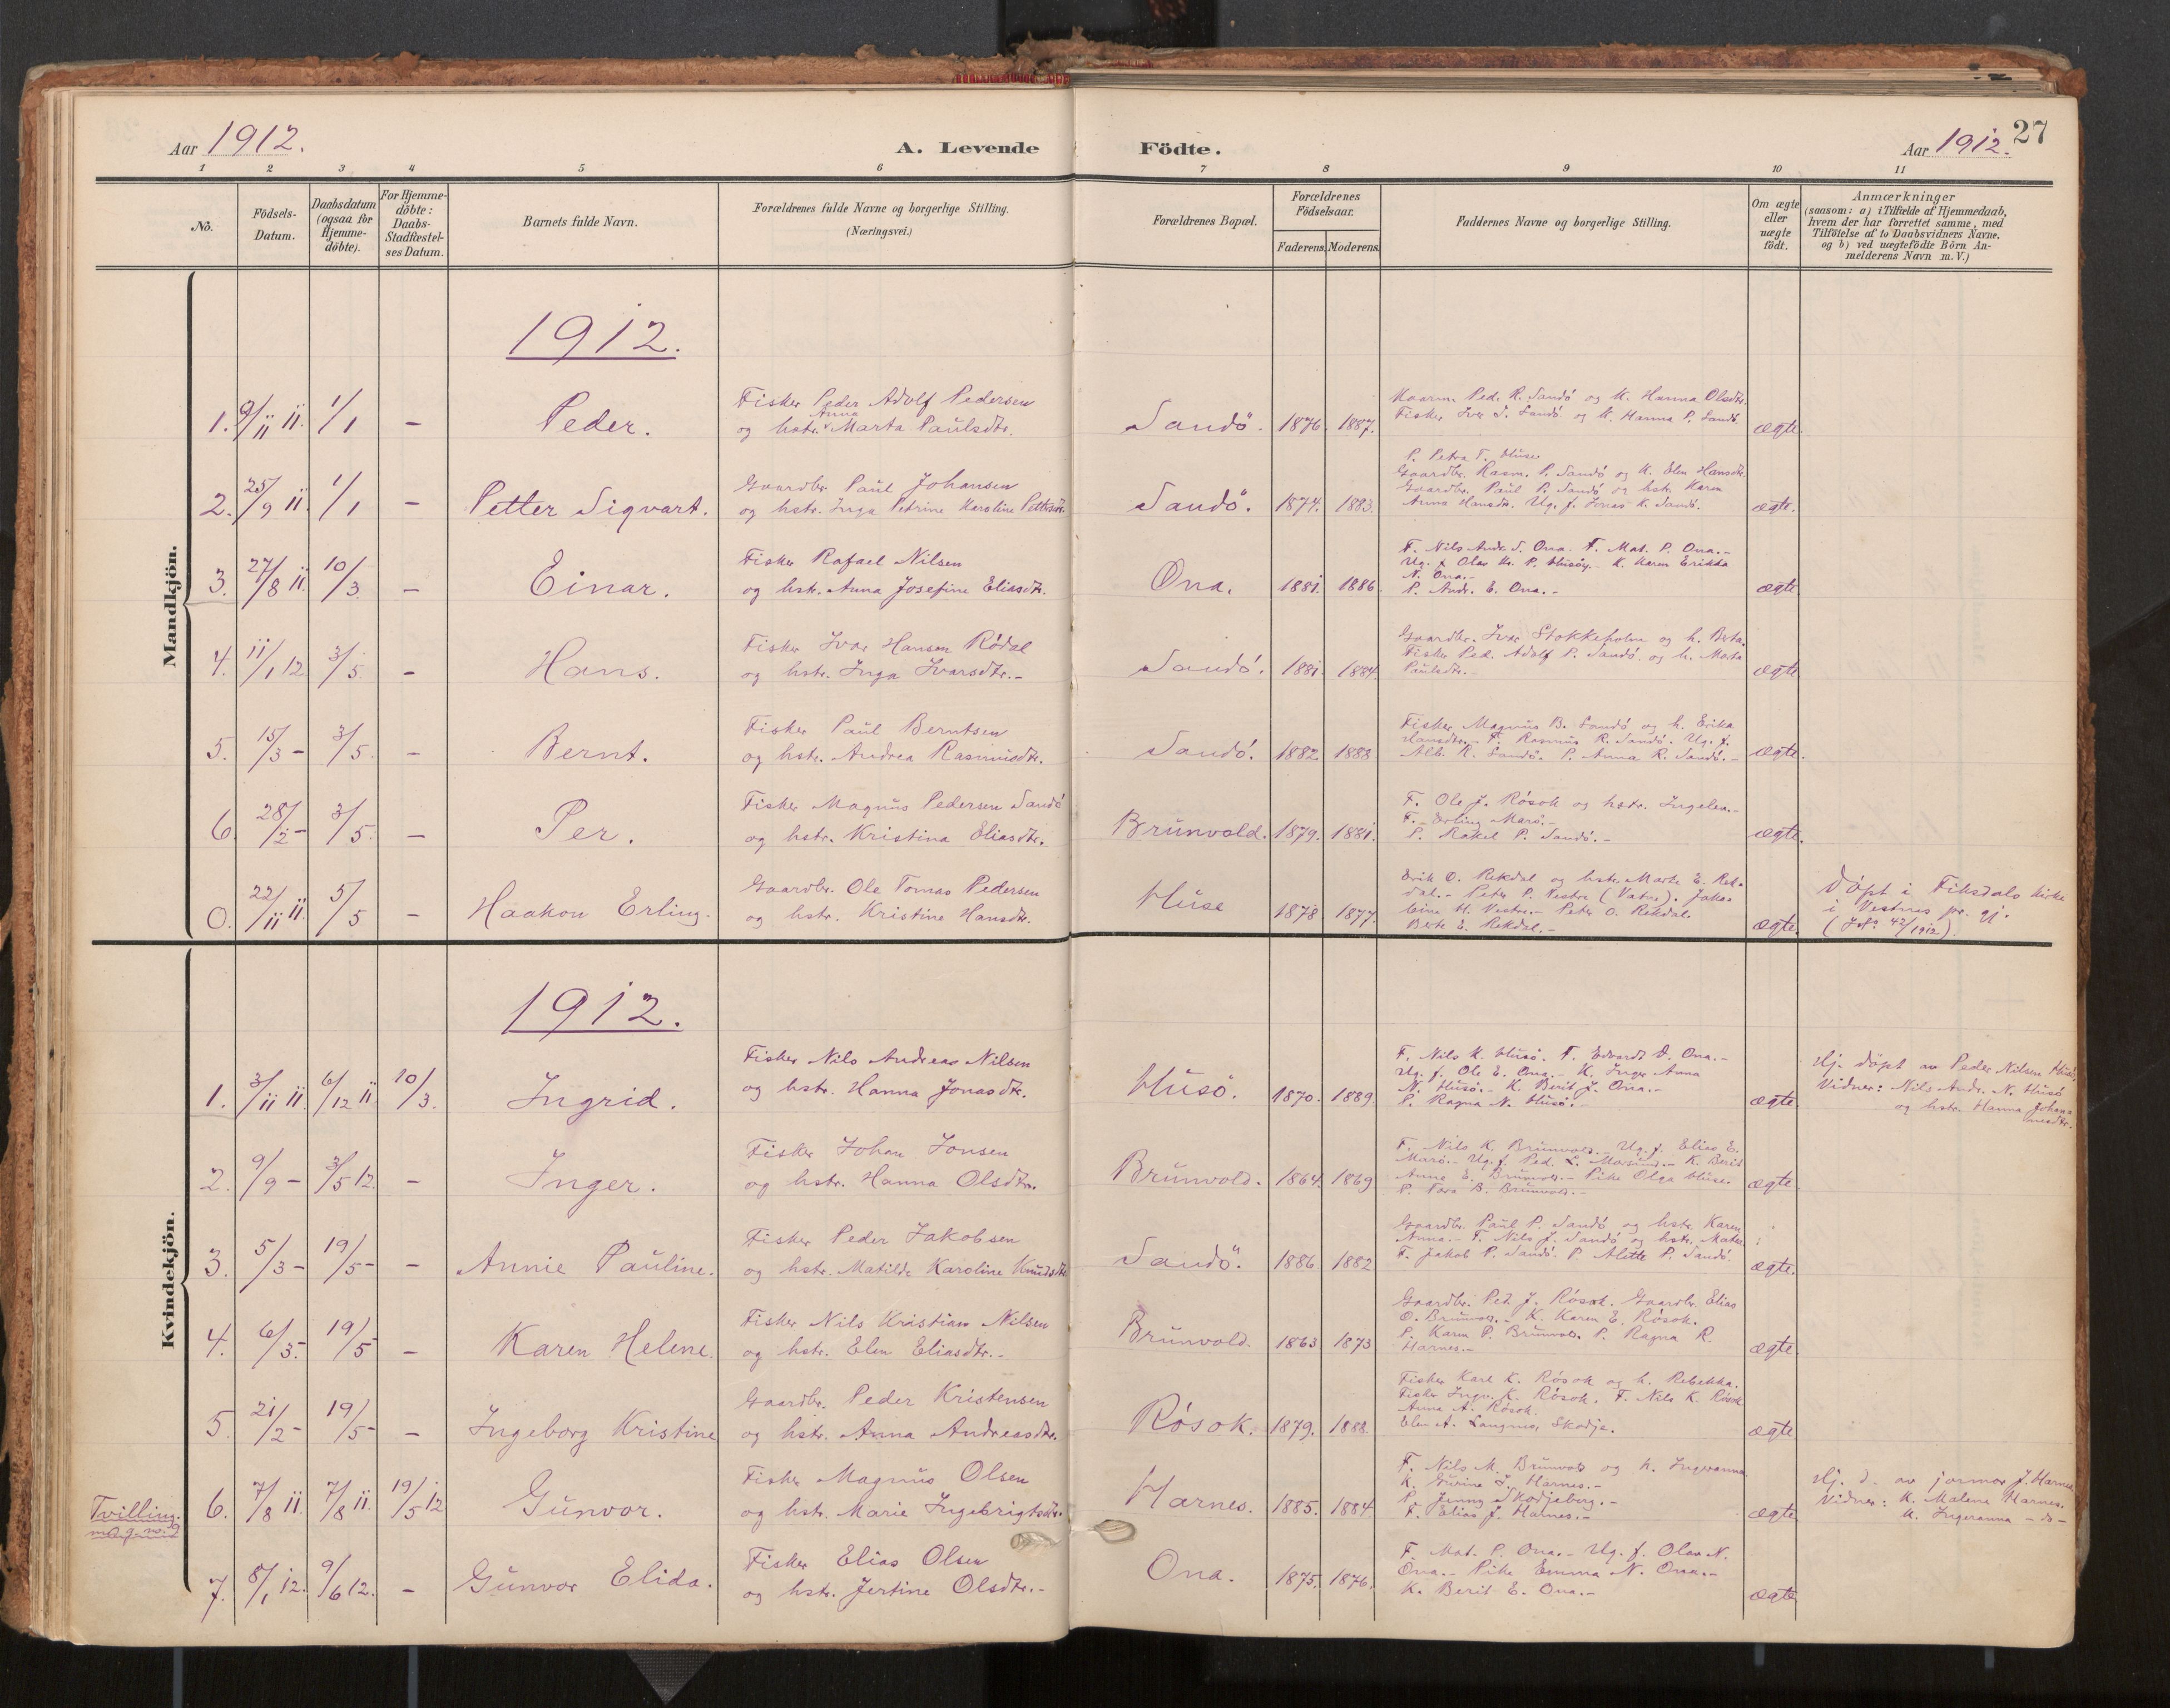 Aar 1912.
A. Levende Födte.
Aar 1912. 27
1 2 3 4 5 6 7 8 9 10 11
No.
Födsels-
Datum.
Daabsdatum
(ogsaa for
Hjemme-
döbte).
For Hjemme-
döbte:
Daabs-
Stadfæstel-
ses Datum.
Barnets fulde Navn.
Forældrenes fulde Navne og borgerlige Stilling.
(Næringsvei.)
Forældrenes Bopæl.
Forældrenes
Födselsaar.
Faderens. Moderens.
Faddernes Navne og borgerlige Stilling.
Om ægte
eller
uægte
födt.
Anmærkninger
(saasom: a) i Tilfælde af Hjemmedaab,
hvem der har forrettet samme, med
Tilföielse af to Daabsvidners Navne,
og b) ved uægtefödte Börn An-
melderens Navn m. V.)
Mandkjön.
1912.
1. 9/11 11. 1/1 - Peder.
Fisker Peder Adolf Pedersen
Anna
og hstr. Marta Paulsdtr.
Sandö. 1876. 1887.
Ped. R. Sandö og K. Hanna Olsdtr.
Fisker Ivar S. Sandö og K. Hanna P. Sandö.
ægte.
2. 25/9 11. 1/1 - Petter Sigvart.
Gaardbr. Paul Johansen
og hstr. Inga Petrine Karoline Pettersdtr.
Sandö. 1874. 1883.
P. Petra T. Huse.
Gaardbr. Rasm. P. Sandö og K. Elen Hansdtr.
Gaardbr. Paul P. Sandö og hstr. Karen
Anna Hansdtr. Ug. f. Jonas K. Sandö.
ægte.
3. 27/8 11. 10/3. - Einar.
Fisker Rafael Nilsen
og hstr. Anna Josefine Eliasdtr.
Ona. 1881. 1886.
F. Nils Andr. S. Ona. F. Mat. P. Ona.-
Ug. f. Olav Kr. P. Husöy.- K. Karen Erikka
N. Ona.-
P. Andr. E. Ona.-
ægte
4. 11/1 12 3/5. - Hans.
Fisker Ivar Hansen Rödal
og hstr. Inga Ivarsdtr.-
Sandö. 1881. 1884.
Gaardbr. Ivar Stokkeholm og h. Berta.
Fisker Ped. Adolf P. Sandö. og h. Marta
Paulsdtr.-
ægte
5. 15/3 - 3/5. - Bernt.
Fisker Paul Berntsen
og hstr. Andrea Rasmusdtr.
Sandö. 1882. 1888.
Fisker Magnus B. Sandö og h. Erika
Hansdtr.- F. Rasmus R. Sandö. Ug. f.
Alb. R. Sandö. P. Anna R. Sandö.-
ægte.
6. 28/2 - 3/5. - Per.
Fisker Magnus Pedersen Sandö
og hstr. Kristina Eliasdtr.
Brunvold. 1879. 1881.
F. Ole J. Rösok og hstr. Ingelen.-
F. Erling Marö.-
P. Rakel P. Sandö.-
ægte.
0. 22/11 11. 5/5 - Haakon Erling.
Gaardbr. Ole Tomas Pedersen
og hstr. Kristine Hansdtr.
Huse 1878 1877.
Erik O. Rekdal og hstr. Marte E. Rek-
dal.- Peter P. Vestre (Vatne). Jako-
bine H. Vestre.- Peter O. Rekdal.
Berte E. Rekdal.-
ægte.
Döpt i Fiksdals kirke
i Vestnes pr. gj.
(42/1912).
Kvindekjön.
1912.
1. 3/11 11. 6/12 11 10/3. Ingrid.
Fisker Nils Andreas Nilsen
og hstr. Hanna Jonasdtr.
Husö. 1870. 1889.
F. Nils K. Husö. F. Edvardt D. Ona.-
Ug. f. Ole E. Ona.- K. Inger Anna
N. Husö.- K. Berit J. Ona.-
P. Ragna N. Husö.-
ægte.
Hj. döpt av Peder Nilsen Husö.
Vidner: Nils Andr. N. Husö
og hstr. Hanna Johan-
nesdtr.
2. 9/9 - 3/5 12. - Inger.
Fisker Johan Jonsen
og hstr. Hanna Olsdtr.
Brunvold. 1864. 1869
F. Nils K. Brunvold.- Ug. f. Elias E.
Marö.- Ug. f. Ped. K. Berit
Anne E. Brunvold.- Pike Olga Huse.
P. Tora B. Brunvold.-
ægte.
3. 5/3 - 19/5 - - Annie Pauline.
Fisker Peder Jakobsen
og hstr. Matilde Karoline Knudsdtr.
Sandö. 1886. 1882
Gaardbr. Paul P. Sandö og hstr. Karen
Anna.- F. Nils J. Sandö og hstr.
F. Jakob P. Sandö. P. Alette P. Sandö
ægte.
4. 6/3. 19/5 - Karen Helene.
Fisker Nils Kristian Nilsen
og hstr. Elen Eliasdtr.-
Brunvold. 1863 1873
Gaardbr. Ped. J. Rösok. Gaardbr. Elias
O. Brunvold.- K. Karen E. Rösok.
P. Karen P. Brunvold. P. Ragna R.
Harnes.-
ægte.
5. 21/2 - 19/5 - - Ingeborg Kristine
Gaardbr. Peder Kristensen
og hstr. Anna Andreasdtr.
Rösok. 1879. 1888.
Fisker Karl K. Rösok og h. Rebekka.
Fisker Ingv. K. Rösok. F. Nils K. Rösok
Anna A. Rösok.
Elen A. Langmo, Skodje.
ægte
Tvilling.
m. g. no. 9
6. 7/8 11. 7/8 11. 19/5 12 Gunvor.
Fisker Magnus Olsen
og hstr. Marie Ingebrigtsdtr.
Harnes. 1885. 1884.
F. Nils M. Brunvold og h. Ingeranna
K. Gurine J. Harnes.-
P. Jenny Skodjeberg.-
F. Elias J. Harnes.-
ægte.
Hj. d. av jormor J. Harnes.
Vidner: K. Malene Harnes.
K. Ingeranna - do -
7. 8/1 12. 9/6 12. - Gunvor Elida.
Fisker Elias Olsen
og hstr. Jertine Olsdtr.-
Ona. 1875. 1876.
F. Mat. P. Ona.- Ug. f. Olav N.
Ona.- Pike Emma N. Ona.-
K. Berit E. Ona.-
ægte